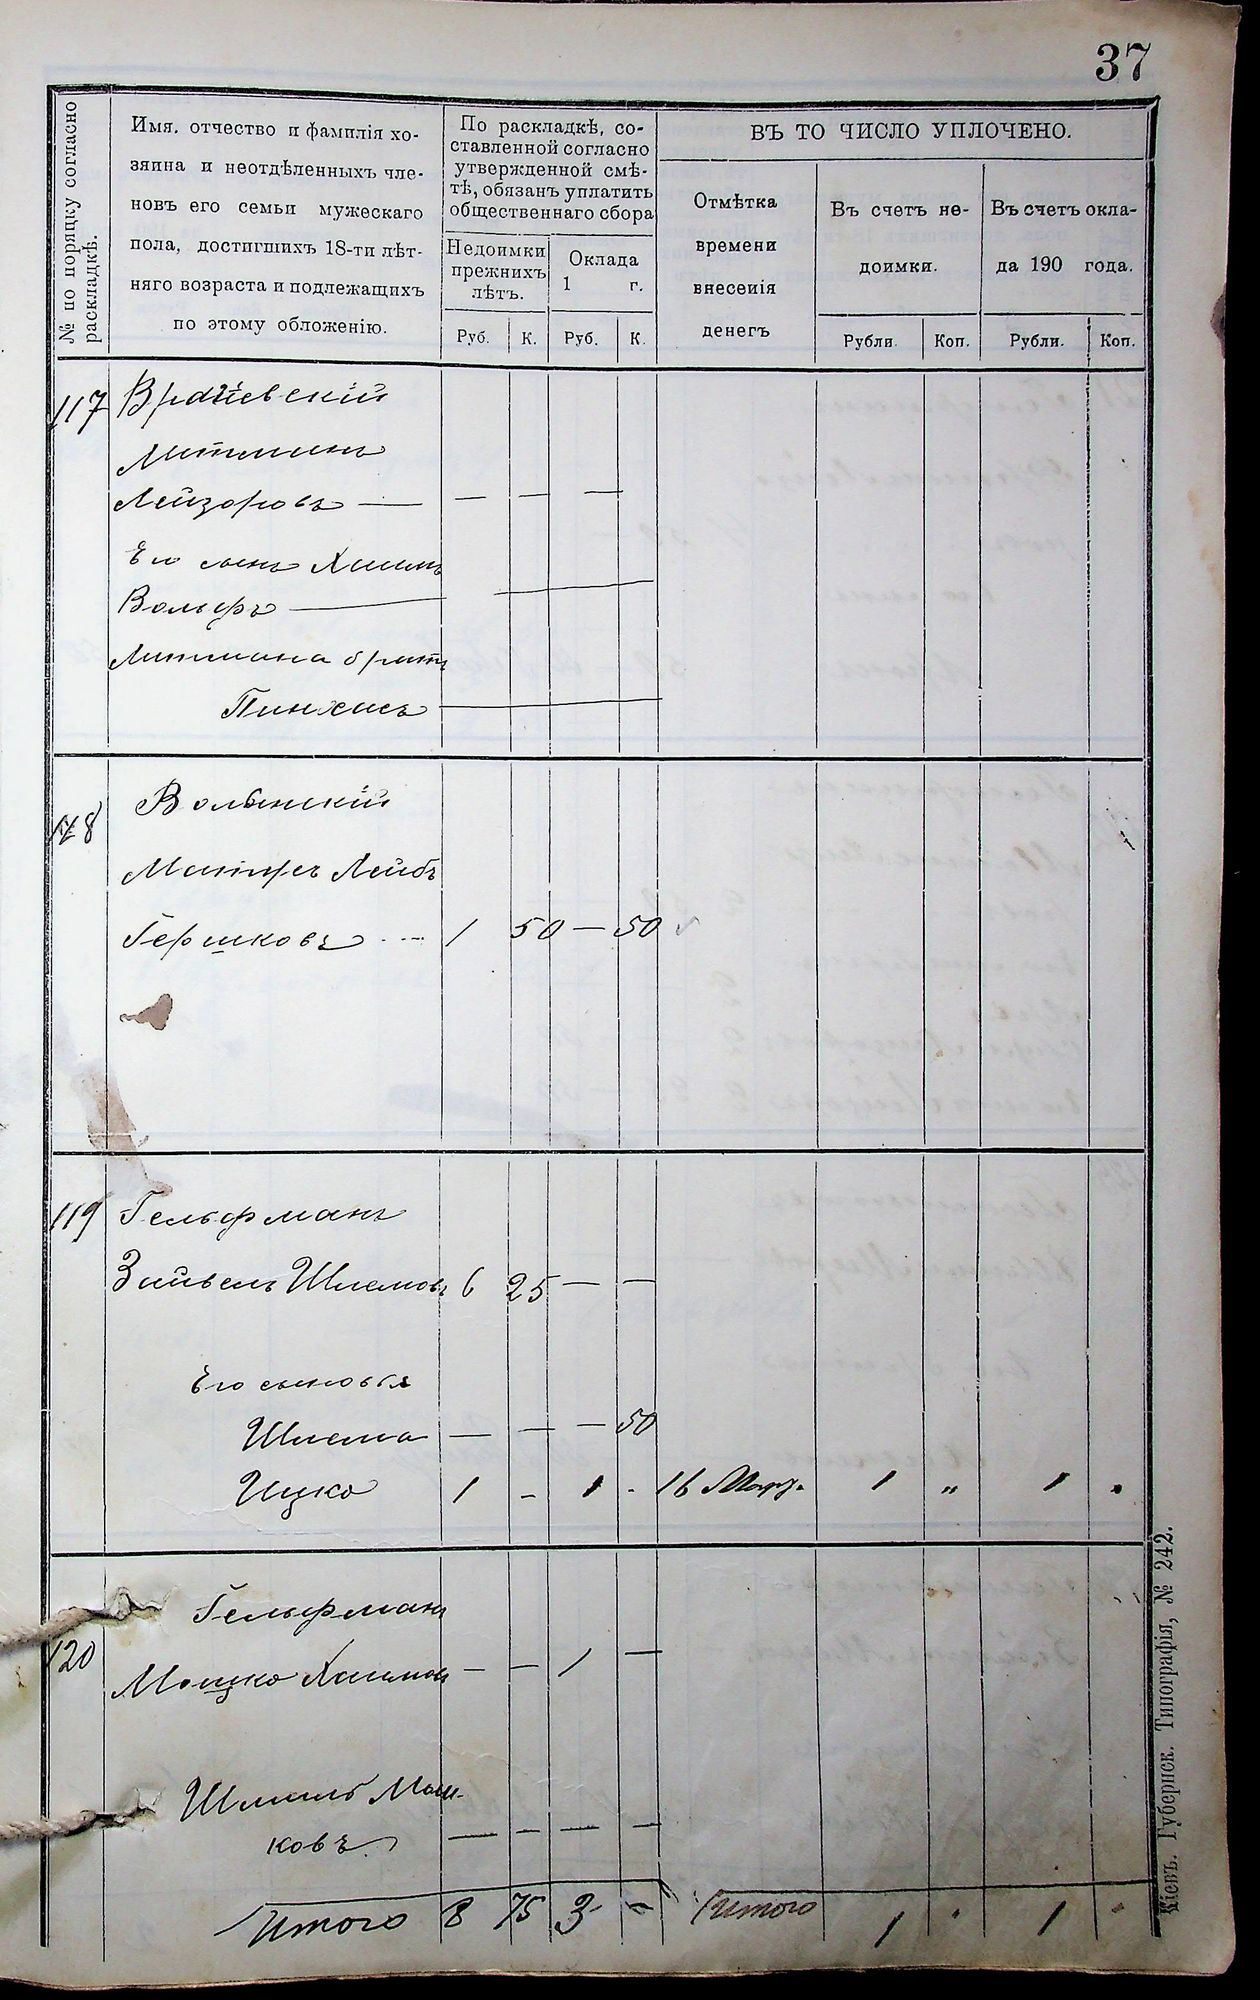 37
№ по порядку согласно раскладкѣ.
Имя, отчество и фамилія хо-
зяина и неотдѣленныхъ чле-
новъ его семьи мужескаго
пола, достигшихъ 18-ти лѣт-
няго возраста и подлежащихъ
по этому обложенію.
По раскладкѣ, со-
ставленной согласно
утвержденной смѣ-
тѣ, обязанъ уплатить
общественнаго сбора
Недоимки
прежнихъ
лѣтъ.
Оклада
1 г.
Руб. К. Руб. К.
ВЪ ТО ЧИСЛО УПЛОЧЕНО.
Отмѣтка
времени
внесенія
денегъ
Въ счетъ не-
доимки.
Рубли. Коп.
Въ счетъ окла-
да 190 года.
Рубли. Коп.
117 Врачевскій
Литманъ
Лейзоровъ — — — —
Его сынъ Хаимъ
Вольфъ —
Литмана братъ
Пинхасъ —
118 Волынскій
Лейбъ
Гершковъ 1 50 — 50
119 Гельфманъ
Зайвель Шлемовъ 6 25 — —
Его сыновья
Шлема — — — 50
Ицко 1 - 1 - 16 Мар. 1 " 1 "
120 Гельфманъ
Мошко Хаимов — — 1 —
Шмиль Мош-
ковъ. — — — —
Итого 8 75 3 - Итого 1 " 1 "
Кіевъ. Губернск. Типографія, № 242.